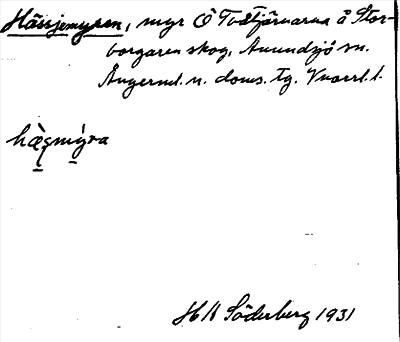 Hässjemyren, myr Ö Tvåtjärnarna å Stor-
borgaren skog, Anundsjö sn.
Ångerml. n. doms. tg. Vnorrl. l.
hæsmy̍ra
H K Söderberg 1931